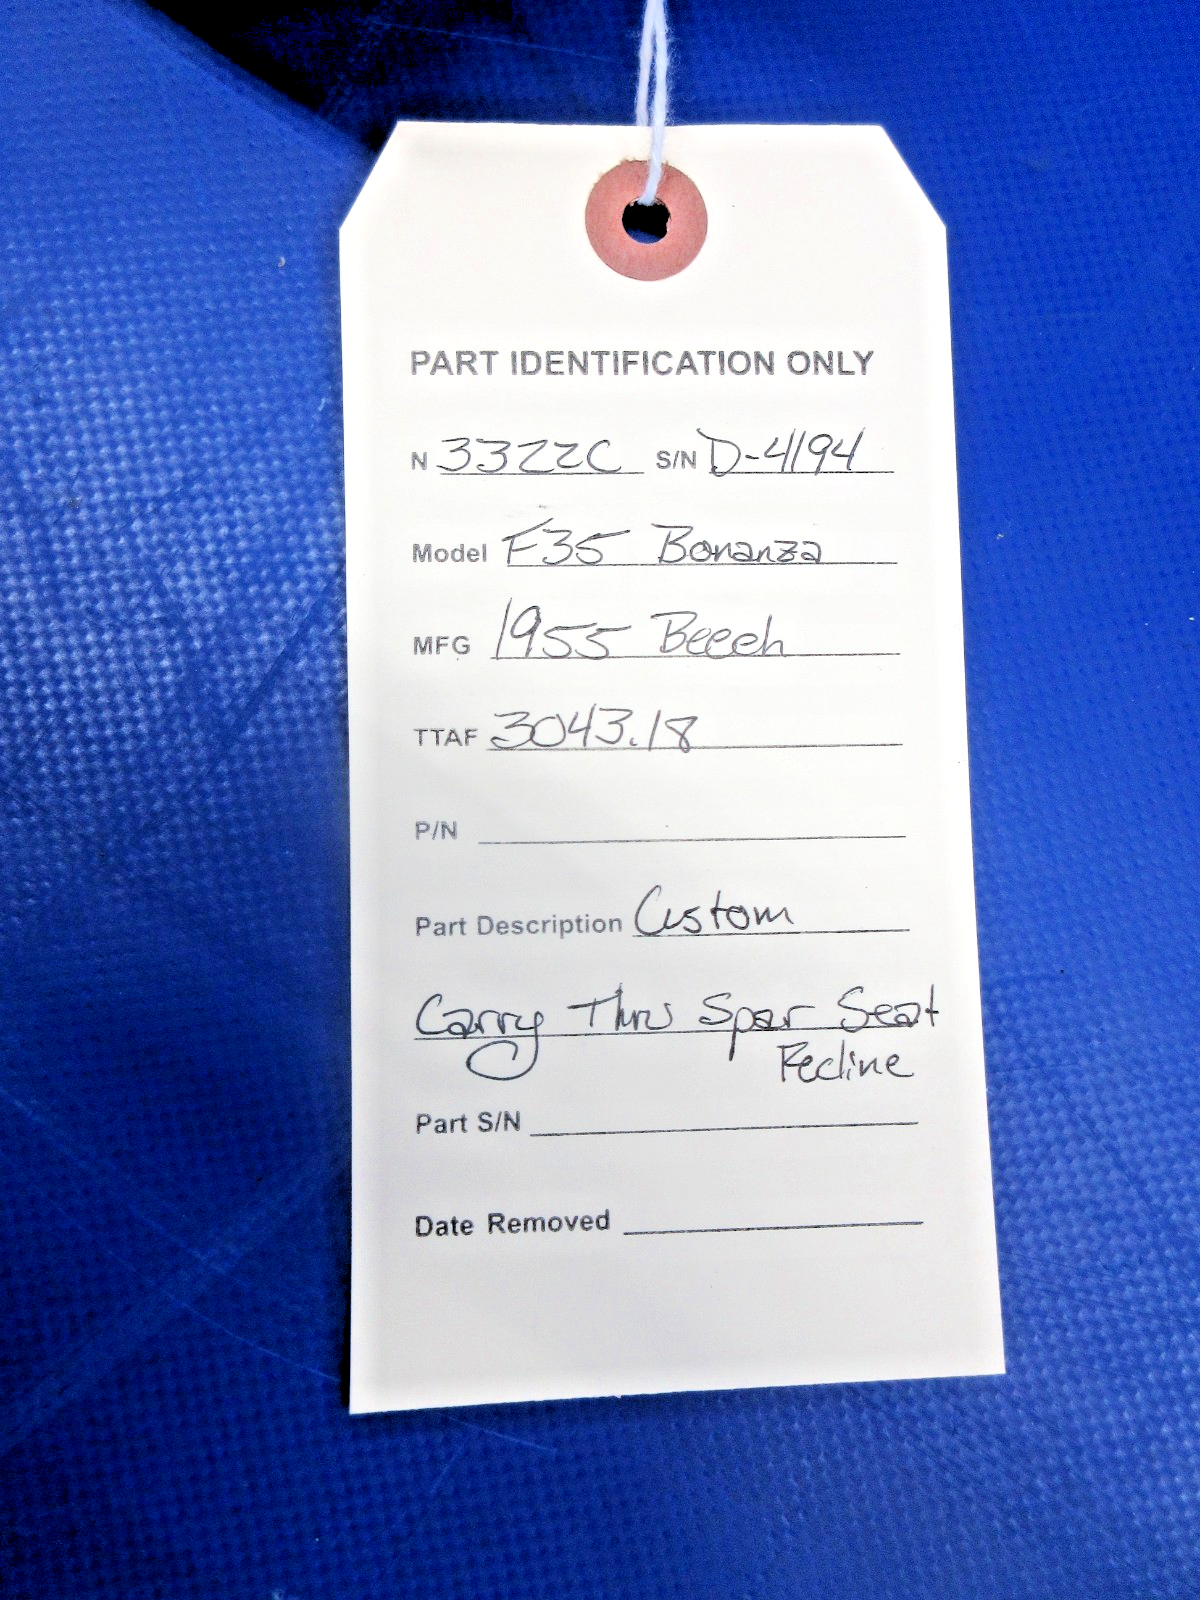 PART IDENTIFICATION ONLY
N 3322C S/N D-4194
Model F35 Bonanza
MFG 1955 Beech
TTAF 3043.18
P/N
Part Description Custom
Carry Thru Spar Seat
Recline
Part S/N
Date Removed